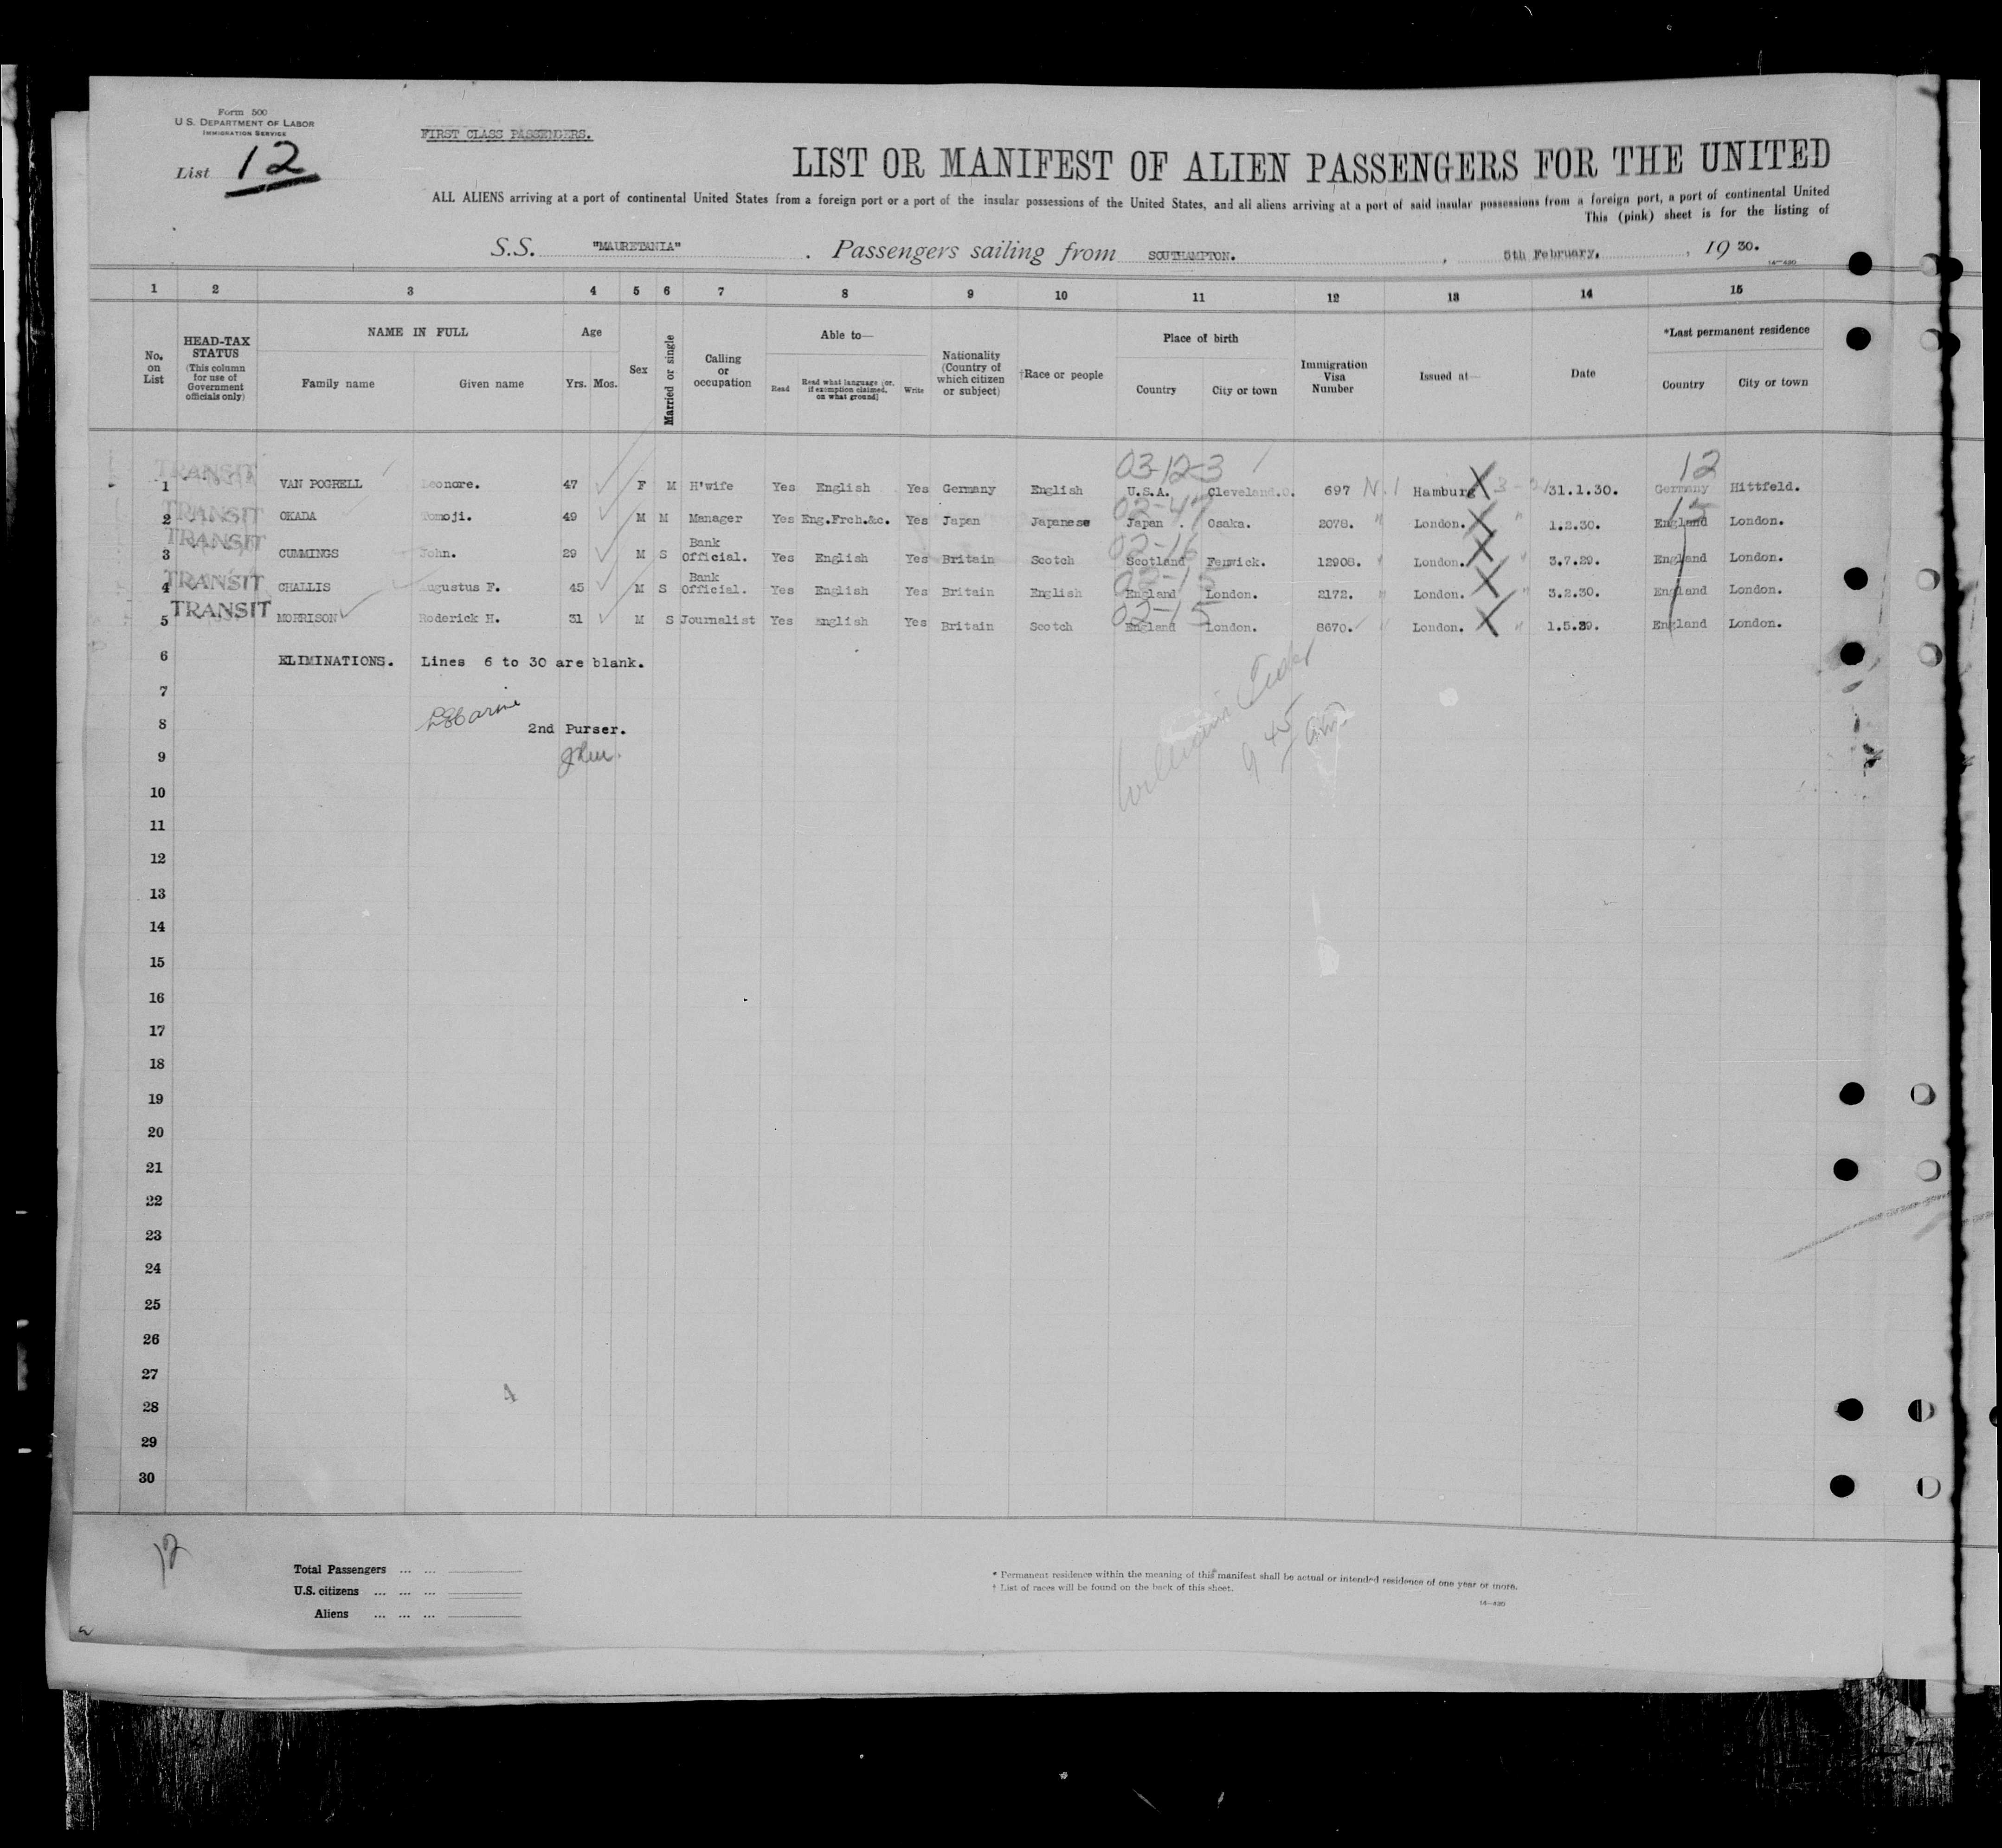 Form 500
U.S. DEPARTMENT OF LABOR
IMMIGRATION SERVICE
FIRST CLASS PASSENGERS.
List 12
LIST OR MANIFEST OF ALIEN PASSENGERS FOR THE UNITED
ALL ALIENS arriving at a port of continental United States from a foreign port or a port of the insular possessions of the United States, and all aliens arriving at a port of said insular possessions from a foreign port, a port of continental United
This (pink) sheet is for the listing of
S.S. "MAURETANIA" . Passengers sailing from SOUTHAMPTON. , 5th February. , 19 30.
14—430
1 2 3 4 5 6 7 8 9 10 11 12 13 14 15
No. on List
HEAD-TAX STATUS (This column for use of Government officials only)
NAME IN FULL
Family name Given name
Age
Yrs. Mos.
Sex
Married or single
Calling or occupation
Able to—
Read Read what language [or, if exemption claimed, on what ground] Write
Nationality (Country of which citizen or subject)
†Race or people
Place of birth
Country City or town
Immigration Visa Number
Issued at—
Date
*Last permanent residence
Country City or town
03-12-3 12
1 TRANSIT VAN POGRELL Leonore. 47 F M H'wife Yes English Yes Germany English U.S.A. Cleveland.O. 697 N.1 Hamburg X 31.1.30. Germany Hittfeld.
02-47 15
2 TRANSIT OKADA Tomoji. 49 M M Manager Yes Eng.Frch.&c. Yes Japan Japanese Japan . Osaka. 2078. " London. X " 1.2.30. England London.
02-16
3 TRANSIT CUMMINGS John. 29 M S Bank Official. Yes English Yes Britain Scotch Scotland Fenwick. 12908. London. X " 3.7.29. England London.
02-15
4 TRANSIT CHALLIS Augustus F. 45 M S Bank Official. Yes English Yes Britain English England London. 2172. " London. X " 3.2.30. England London.
02-15
5 TRANSIT MORRISON Roderick H. 31 M S Journalist Yes English Yes Britain Scotch England London. 8670. London. X " 1.5.29. England London.
6 ELIMINATIONS. Lines 6 to 30 are blank.
7
8 2nd Purser.
9
William
9 45
10
11
12
13
14
15
16
17
18
19
20
21
22
23
24
25
26
27
28
29
30
12
Total Passengers ... ...
U.S. citizens ... ... ...
Aliens ... ... ...
* Permanent residence within the meaning of this manifest shall be actual or intended residence of one year or more.
† List of races will be found on the back of this sheet.
14—430